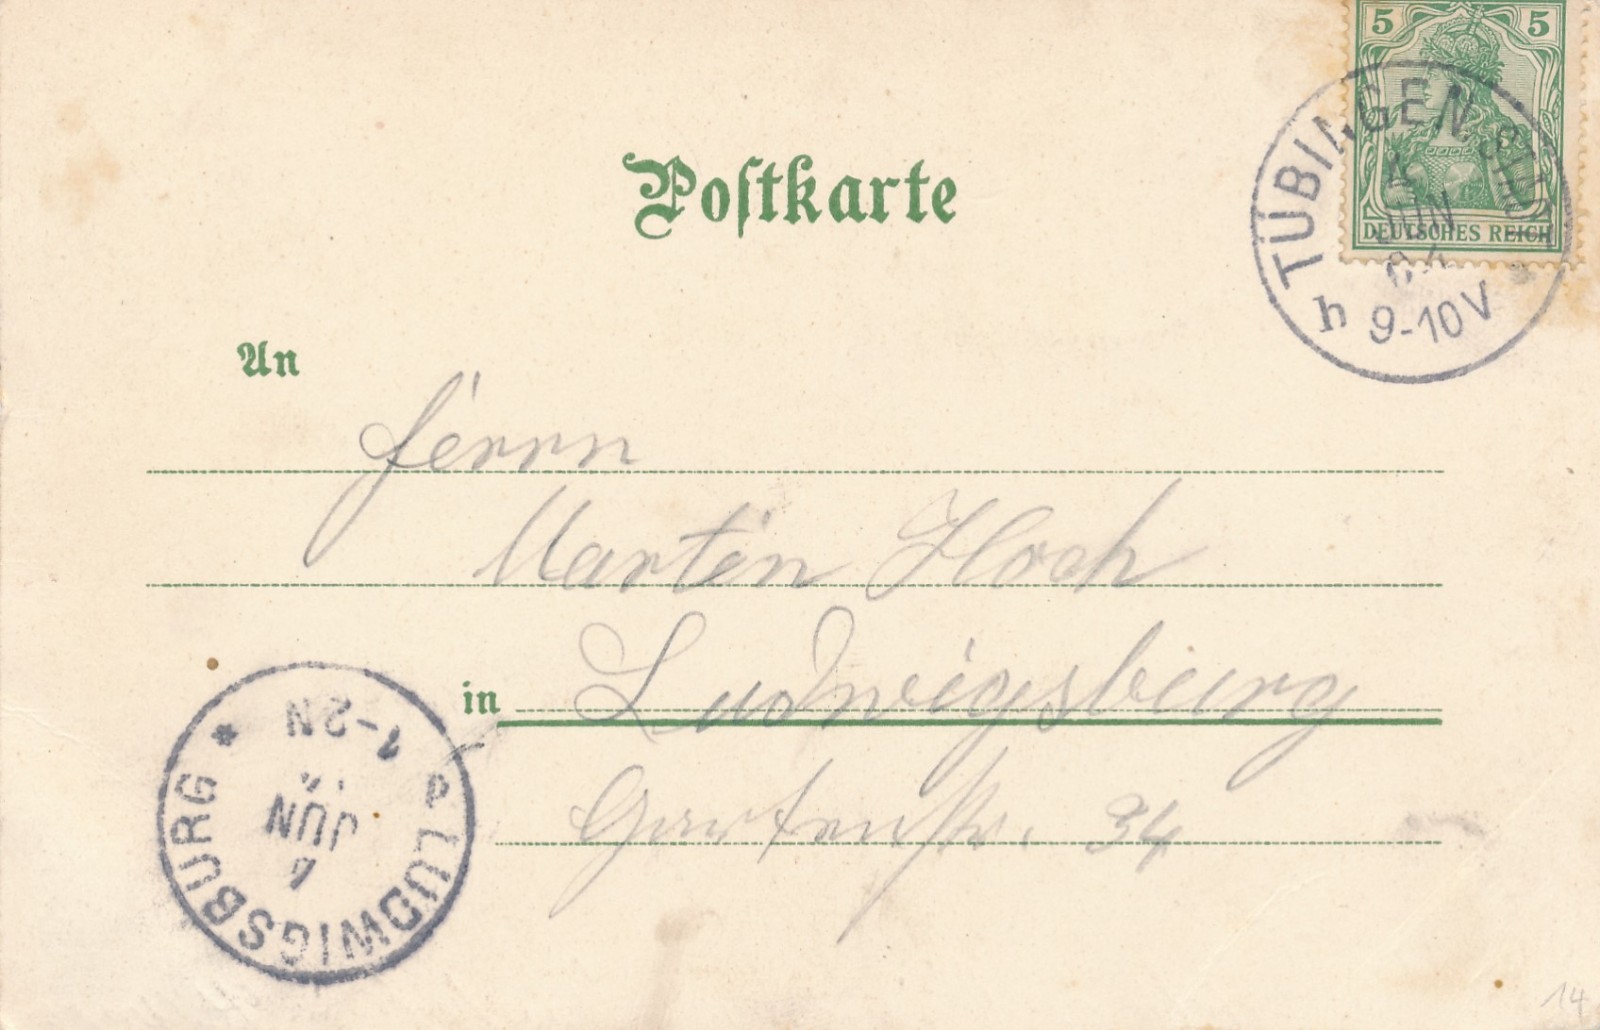 5 5
DEUTSCHES REICH
TÜBINGEN
JUN
04
h 9-10V
Postkarte
An
Herrn
Martin Hoch
in Ludwigsburg
Gartenstr. 34
LUDWIGSBURG *
JUN
1-2N
14